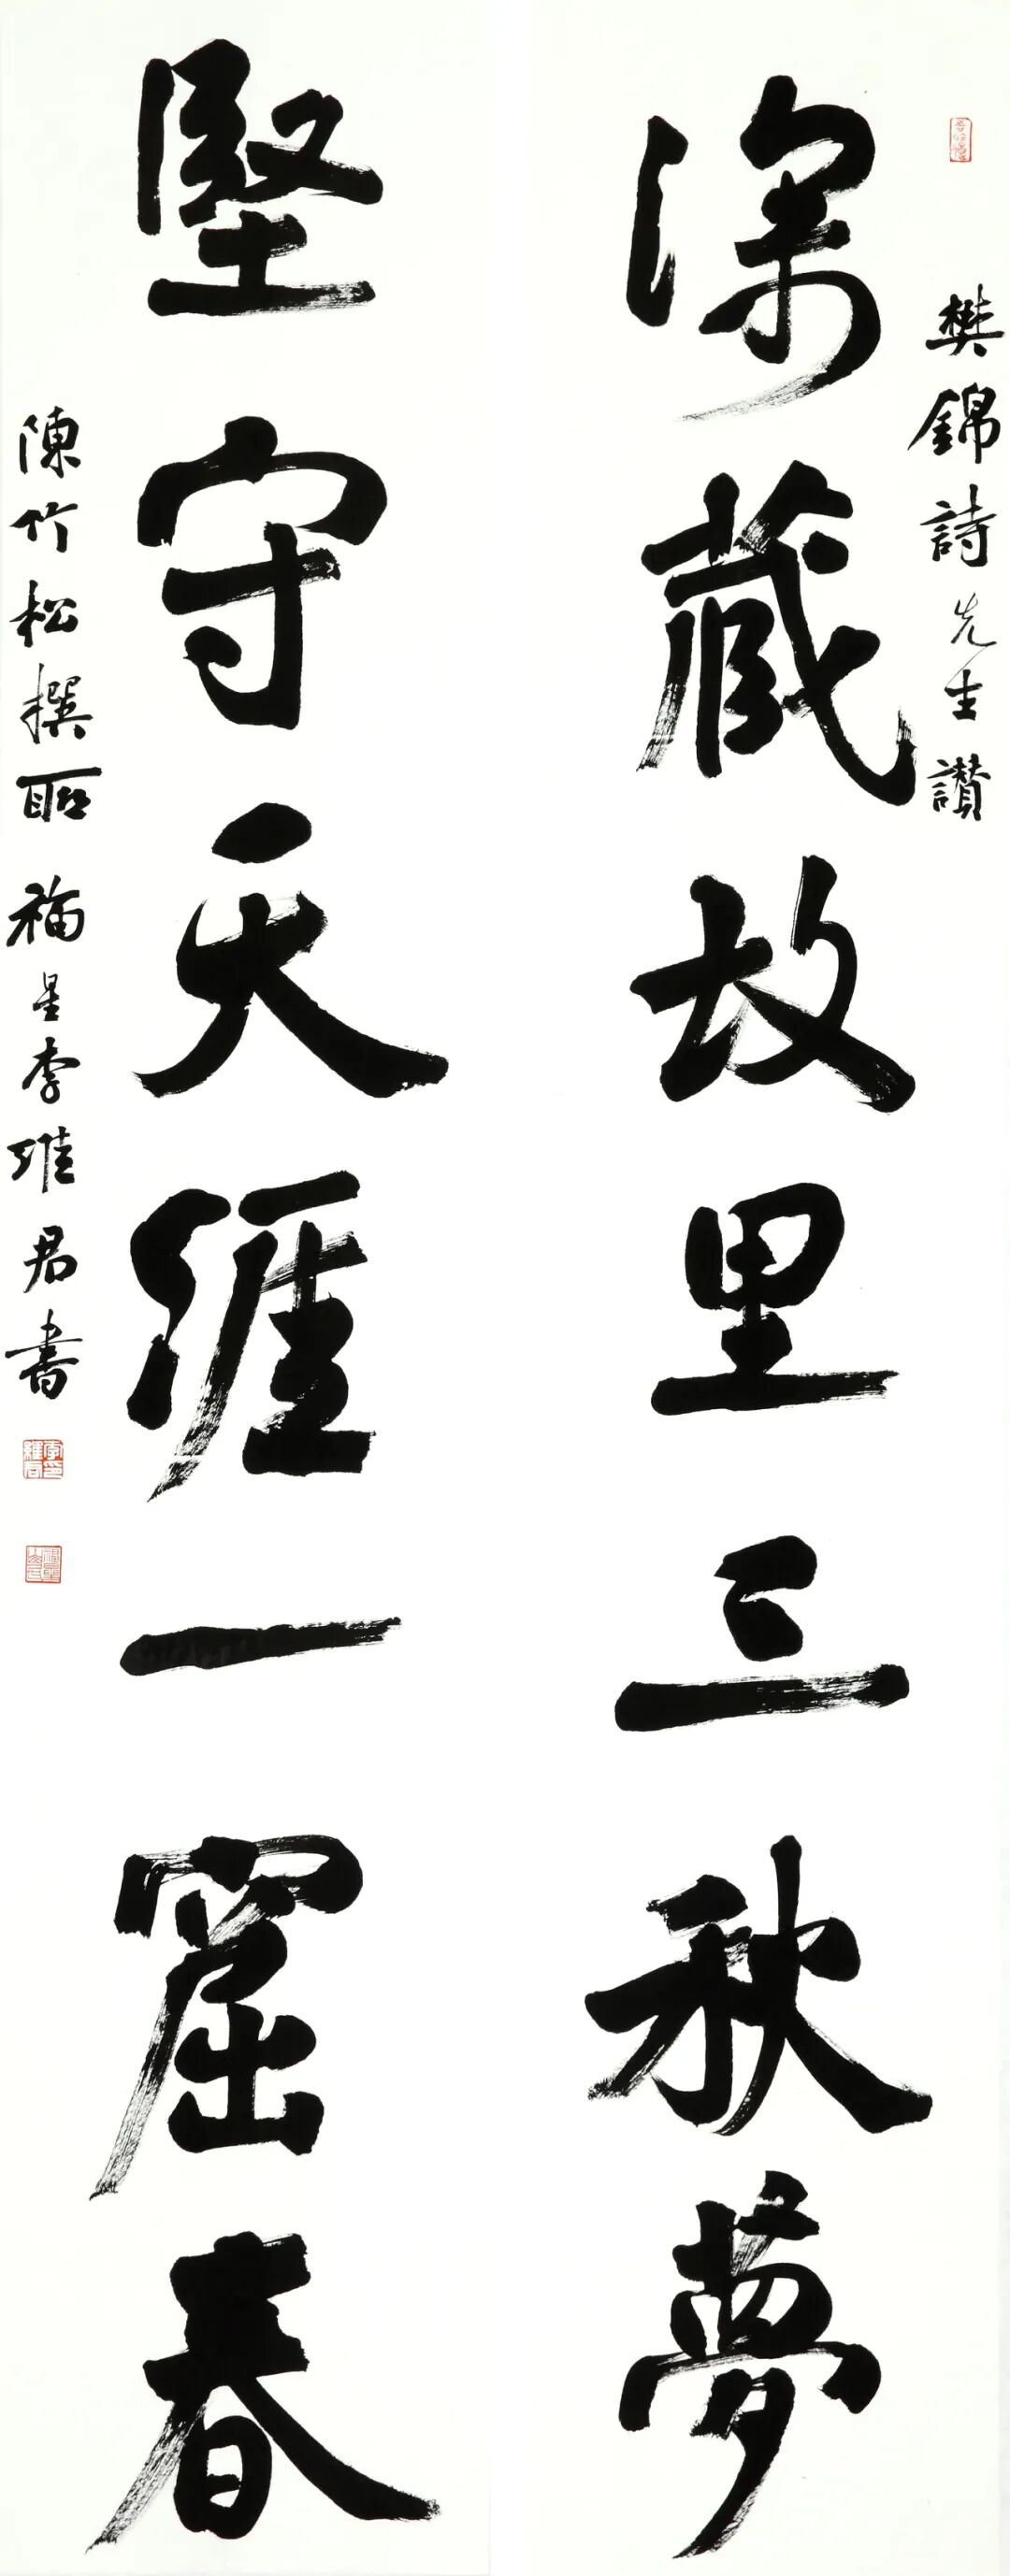 樊錦詩先生讚
深藏故里三秋夢
堅守天涯一窟春
陳竹松撰聯 福星李維君書